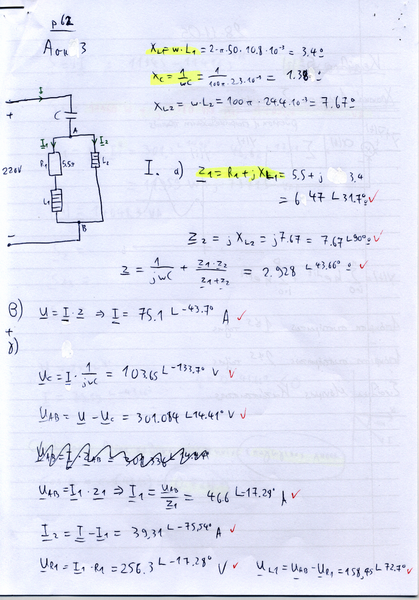 p62
Ασκ 3
X_L1 = ω·L1 = 2·π·50·10.8·10⁻³ = 3,4Ω
X_C = 1/ωC = 1/(100π·2.3·10⁻³) = 1.38 Ω
X_L2 = ω·L2 = 100π·24.4·10⁻³ = 7.67Ω
+
I
C
A
I1
I2
220V
R1
5.5Ω
L2
L1
B
-
I. α) Z1 = R1 + jXL1 = 5.5 + j 3,4
= 6.47 ∟31.7° Ω ✓
Z2 = jXL2 = j7.67 = 7.67 ∟90° Ω ✓
Z = 1/jωC + Z1·Z2/(Z1+Z2) = 2.928 ∟43.66° Ω ✓
β) U = I·Z ⇒ I = 75.1 ∟-43.7° A ✓
+
γ)
UC = I·1/jωC = 103.65 ∟-133.7° V ✓
UAB = U - UC = 301.084 ∟14.41° V ✓
UAB = I1·Z1 ⇒ I1 = UAB/Z1 = 46.6 ∟-17.29° A ✓
I2 = I - I1 = 39,31 ∟-75,54° A ✓
UR1 = I1·R1 = 256.3 ∟-17.28° V ✓ UL1 = UAB - UR1 = 158,45 ∟72.7° V ✓